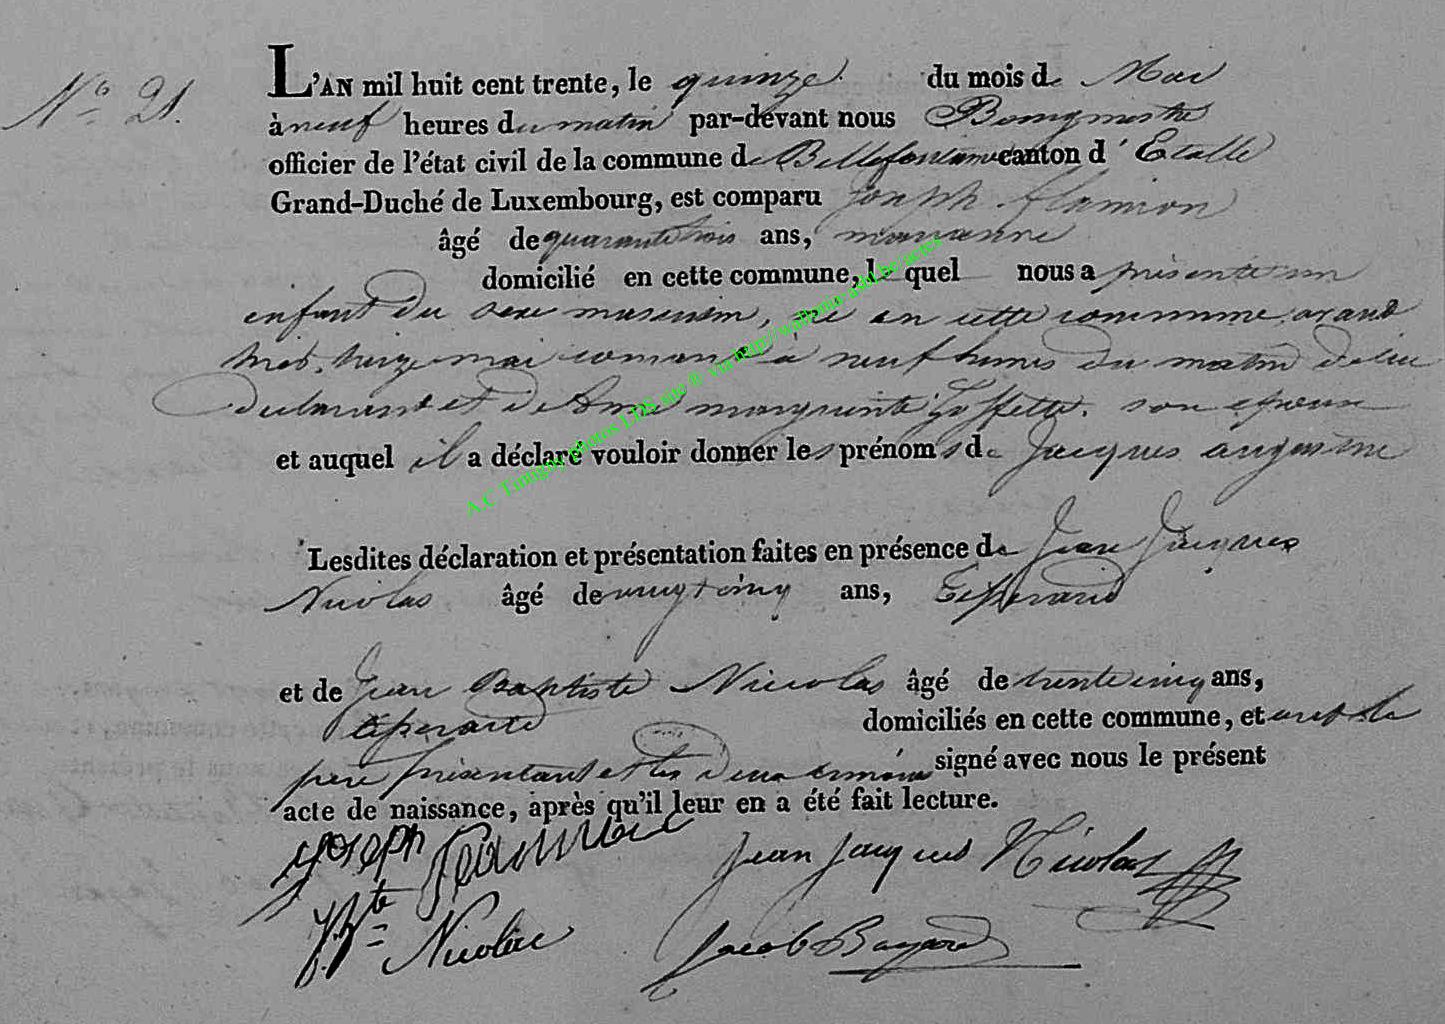 No 21.
L'AN mil huit cent trente, le quinze du mois de Mai
à neuf heures du matin par-devant nous Bourgmestre
officier de l'état civil de la commune de Bellefontaine canton d'Etalle
Grand-Duché de Luxembourg, est comparu Joseph flamion
âgé de quarante trois ans, manœuvre
domicilié en cette commune, lequel nous a présenté un
enfant du sexe masculin, né en cette commune avant
hier treize mai courant à neuf heures du matin de lui
declarant et de Anne marguerite Goffette. son épouse
et auquel il a déclaré vouloir donner les prénoms de Jacques augustine
Lesdites déclaration et présentation faites en présence de Jean Jacques
Nicolas âgé de vingt cinq ans, Tisserand
et de Jean Baptiste Nicolas âgé de trente cinq ans,
tisserand domiciliés en cette commune, et ont le
père présentant et les deux témoins signé avec nous le présent
acte de naissance, après qu'il leur en a été fait lecture.
Joseph flamion Jean Jacques Nicolas
J. Bte Nicolas Jacob
A.C Tintigny photos LDS site ® via http://wallonia-asbl.be/actes